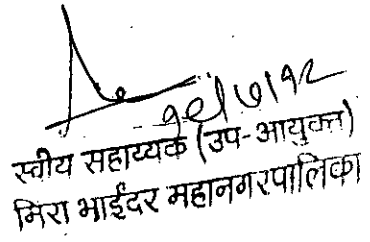 १९/७/१२
स्वीय सहाय्यक (उप-आयुक्त)
मिरा भाईंदर महानगरपालिका